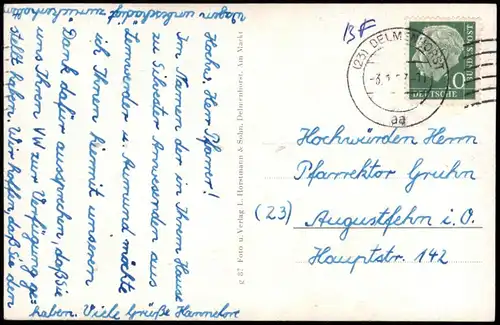 Hohw. Herr Pfarrer!
Im Namen der in Ihrem Hause
zu Silvester Anwesenden aus
Lemwerder u. Aumund möchte
ich Ihnen hiermit unseren
Dank dafür aussprechen, daß Sie
uns Ihren VW zur Verfügung ge-
stellt haben. Wir hoffen, daß Sie den
Wagen unbeschädigt zurückerhalten
haben. Viele Grüße Hannelore
g 87 Foto u. Verlag L. Horstmann & Sohn, Delmenhorst, Am Markt
BF
(23) DELMENHORST
aa
10
BUNDESPOST
DEUTSCHE
Hochwürden Herrn
Pfarrektor Gruhn
(23) Augustfehn i. O.
Hauptstr. 142